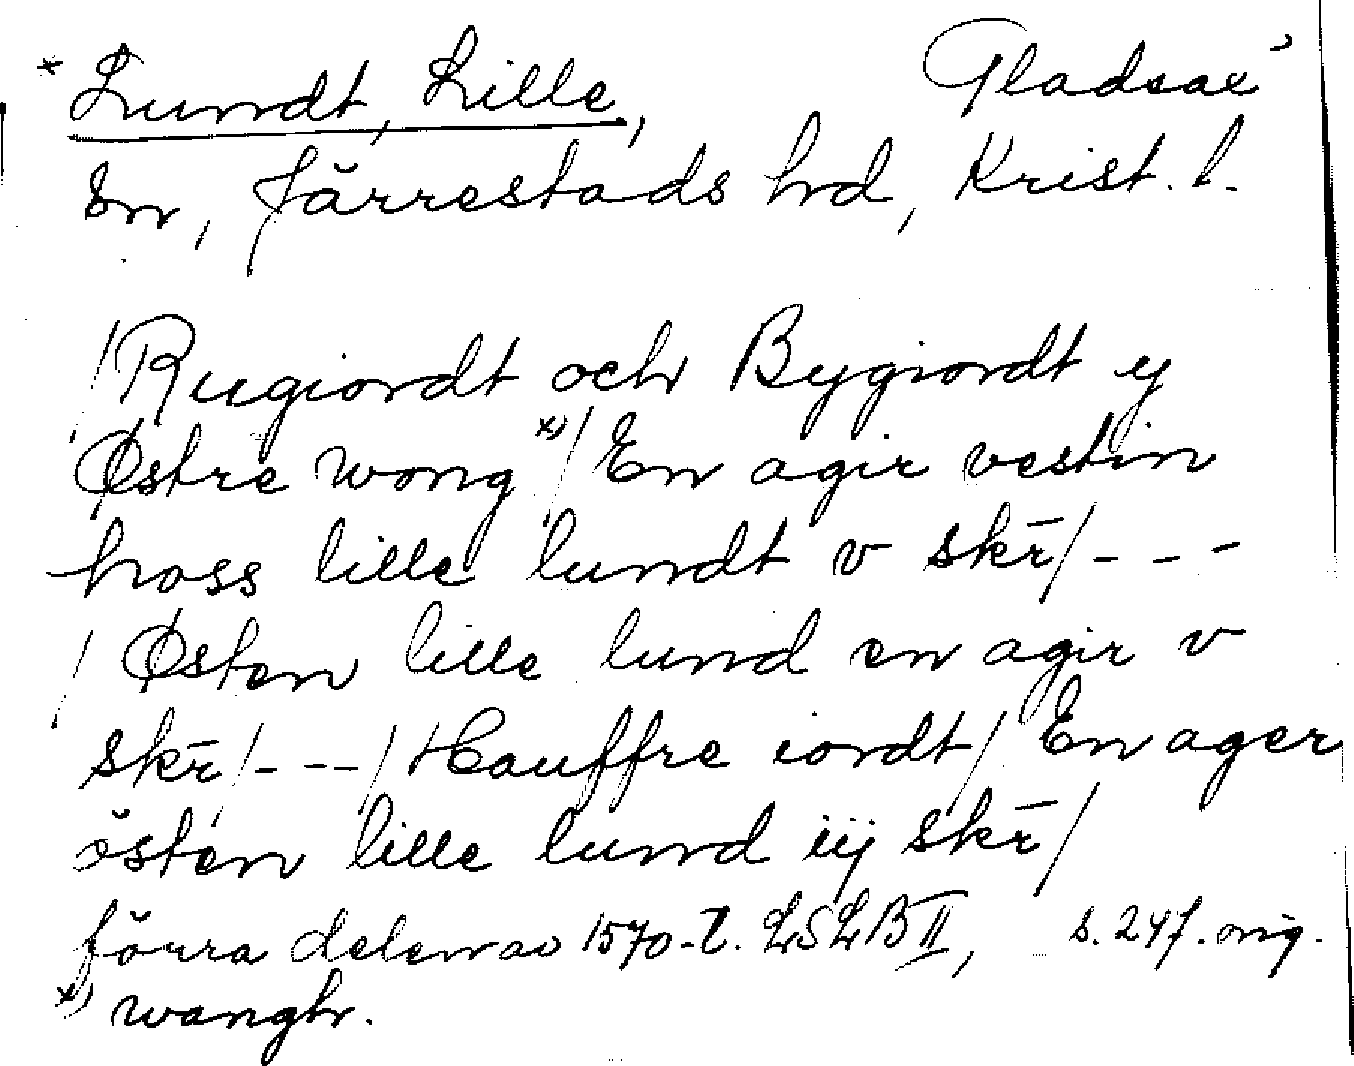 * Lundt, Lille, Gladsax
sn, Järrestads hd, Krist. l.
/Rugiordt och Bygiordt y
Østre wong x)/ En agir vestin
hoss lille lundt v skr̄/ - - -
/ Østen lille lund en agir v
skr̄/ - - - / Hauffre iordt/ En ager
östen lille lund iij skr̄/
förra delen av 1570-t. LSLB II, s. 247. orig.
x) wangh.